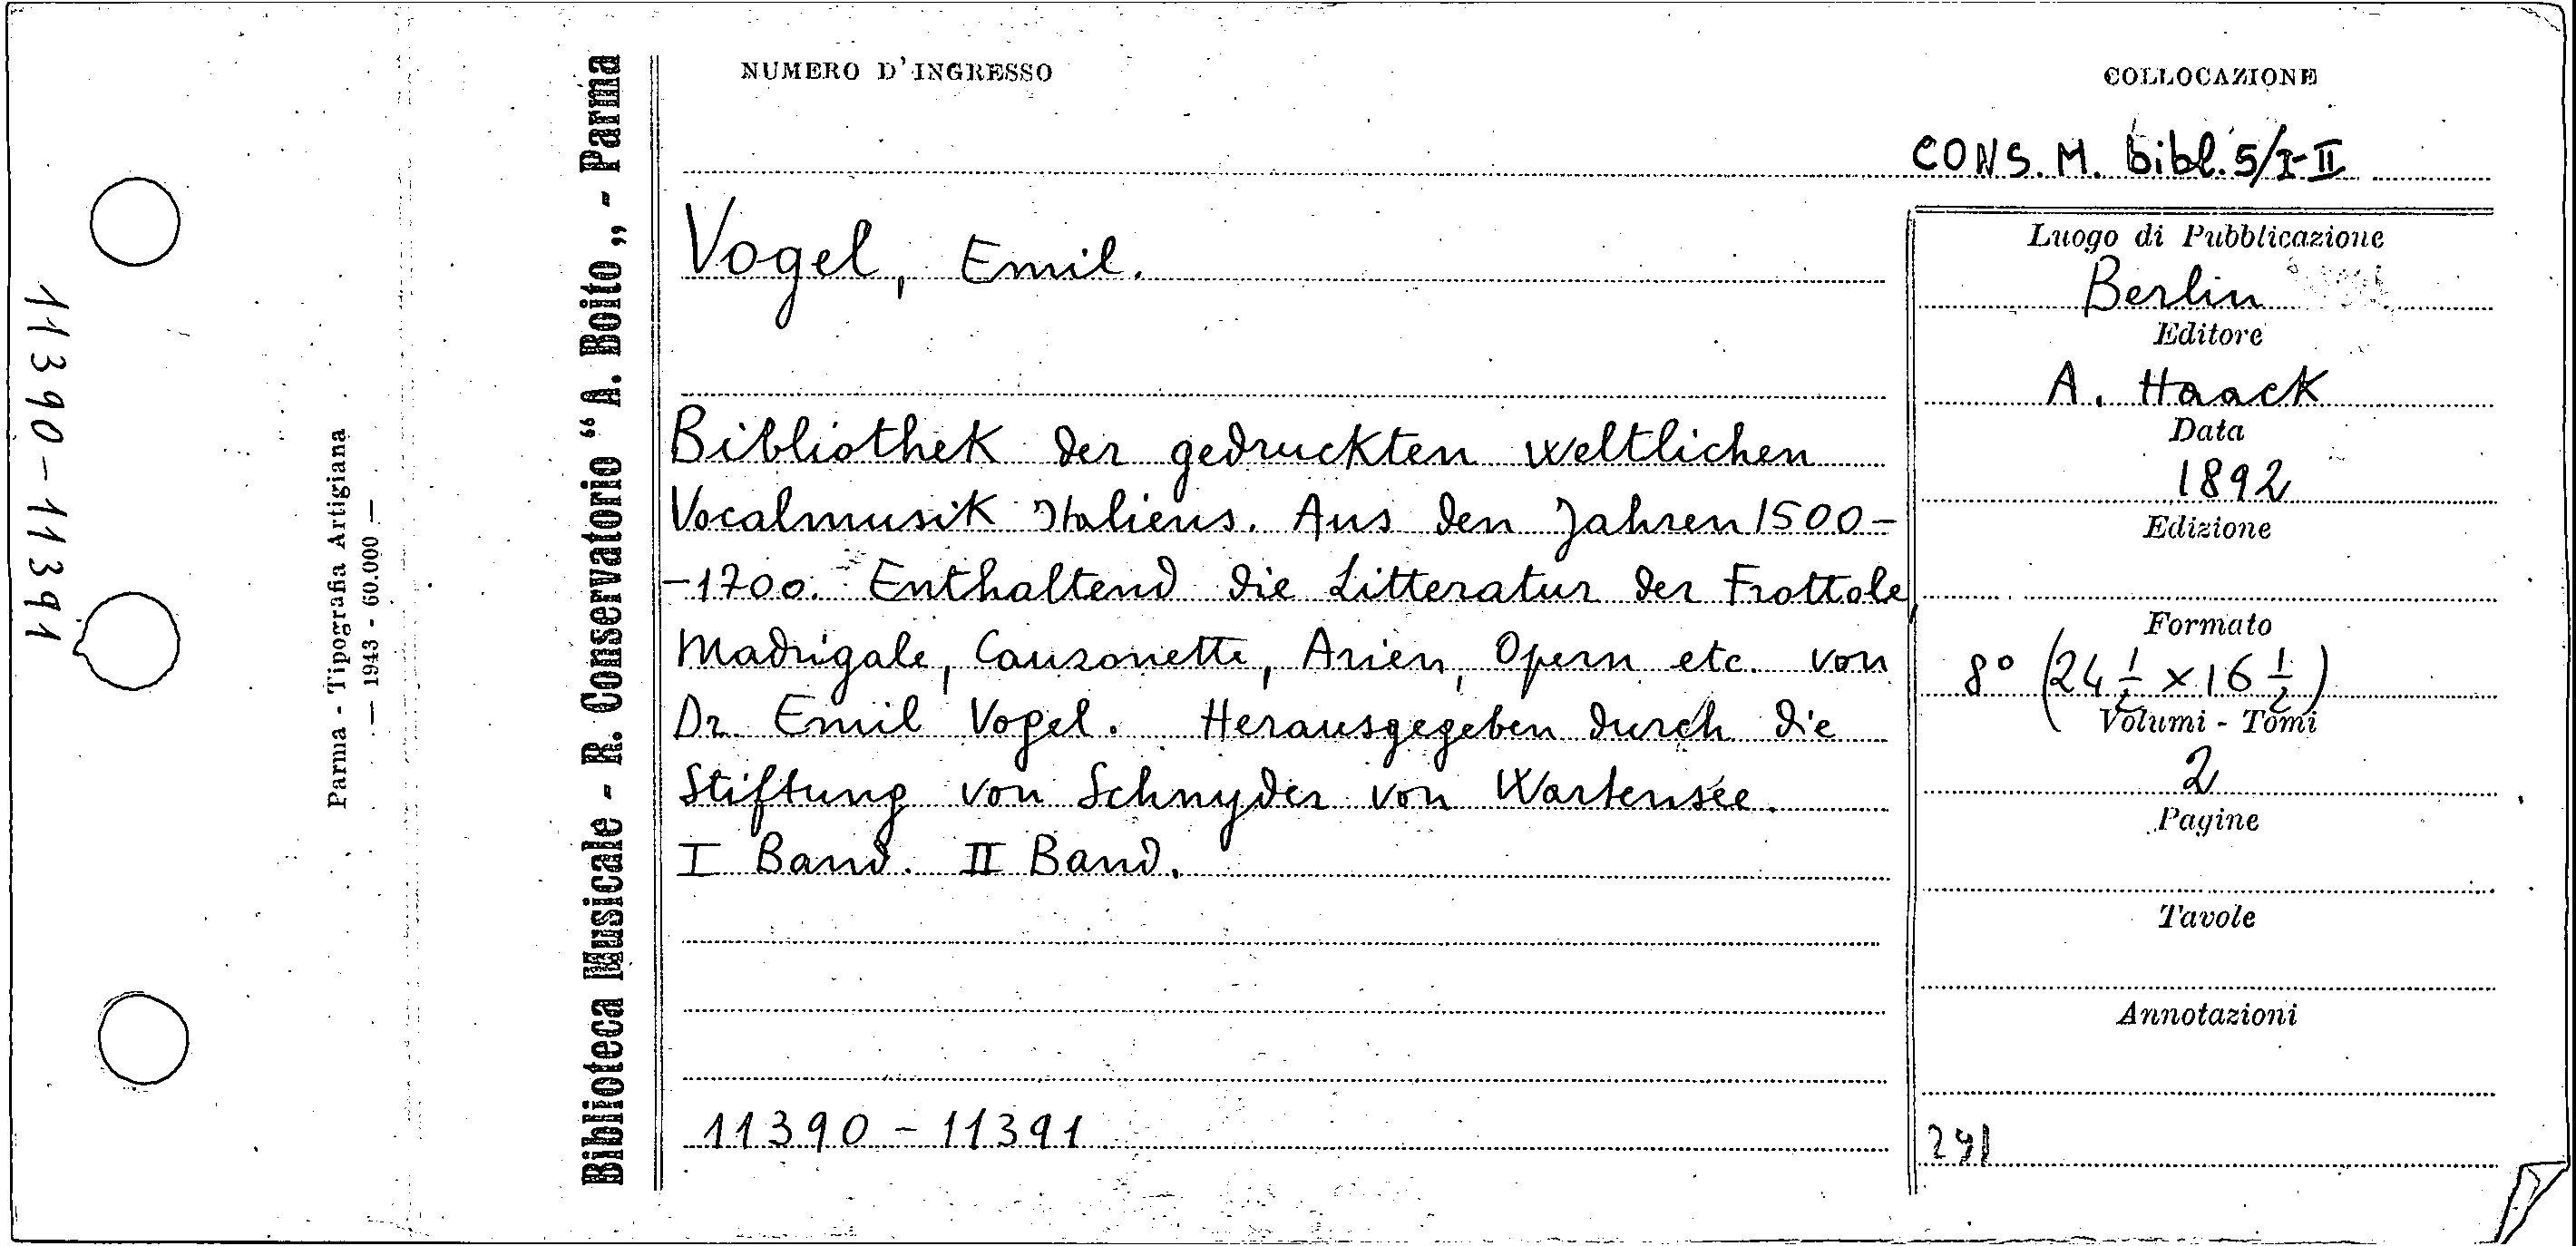 11390-11391
Parma - Tipografia Artigiana
— 1943 - 60.000 —
Biblioteca Musicale - R. Conservatorio "A. Boito„ - Parma
NUMERO D'INGRESSO
COLLOCAZIONE
CONS. M. bibl. 5/I-II
Vogel, Emil.
Bibliothek der gedruckten weltlichen
Vocalmusik Italiens. Aus den Jahren 1500-
-1700. Enthaltend die Litteratur der Frottole,
Madrigale, Canzonette, Arien, Opern etc. von
Dr. Emil Vogel. Herausgegeben durch die
Stiftung von Schnyder von Wartensee.
I Band. II Band.
11390-11391
Luogo di Pubblicazione
Berlin
Editore
A. Haack
Data
1892
Edizione
Formato
8° (24 1/2 x 16 1/2)
Volumi - Tomi
2
Pagine
Tavole
Annotazioni